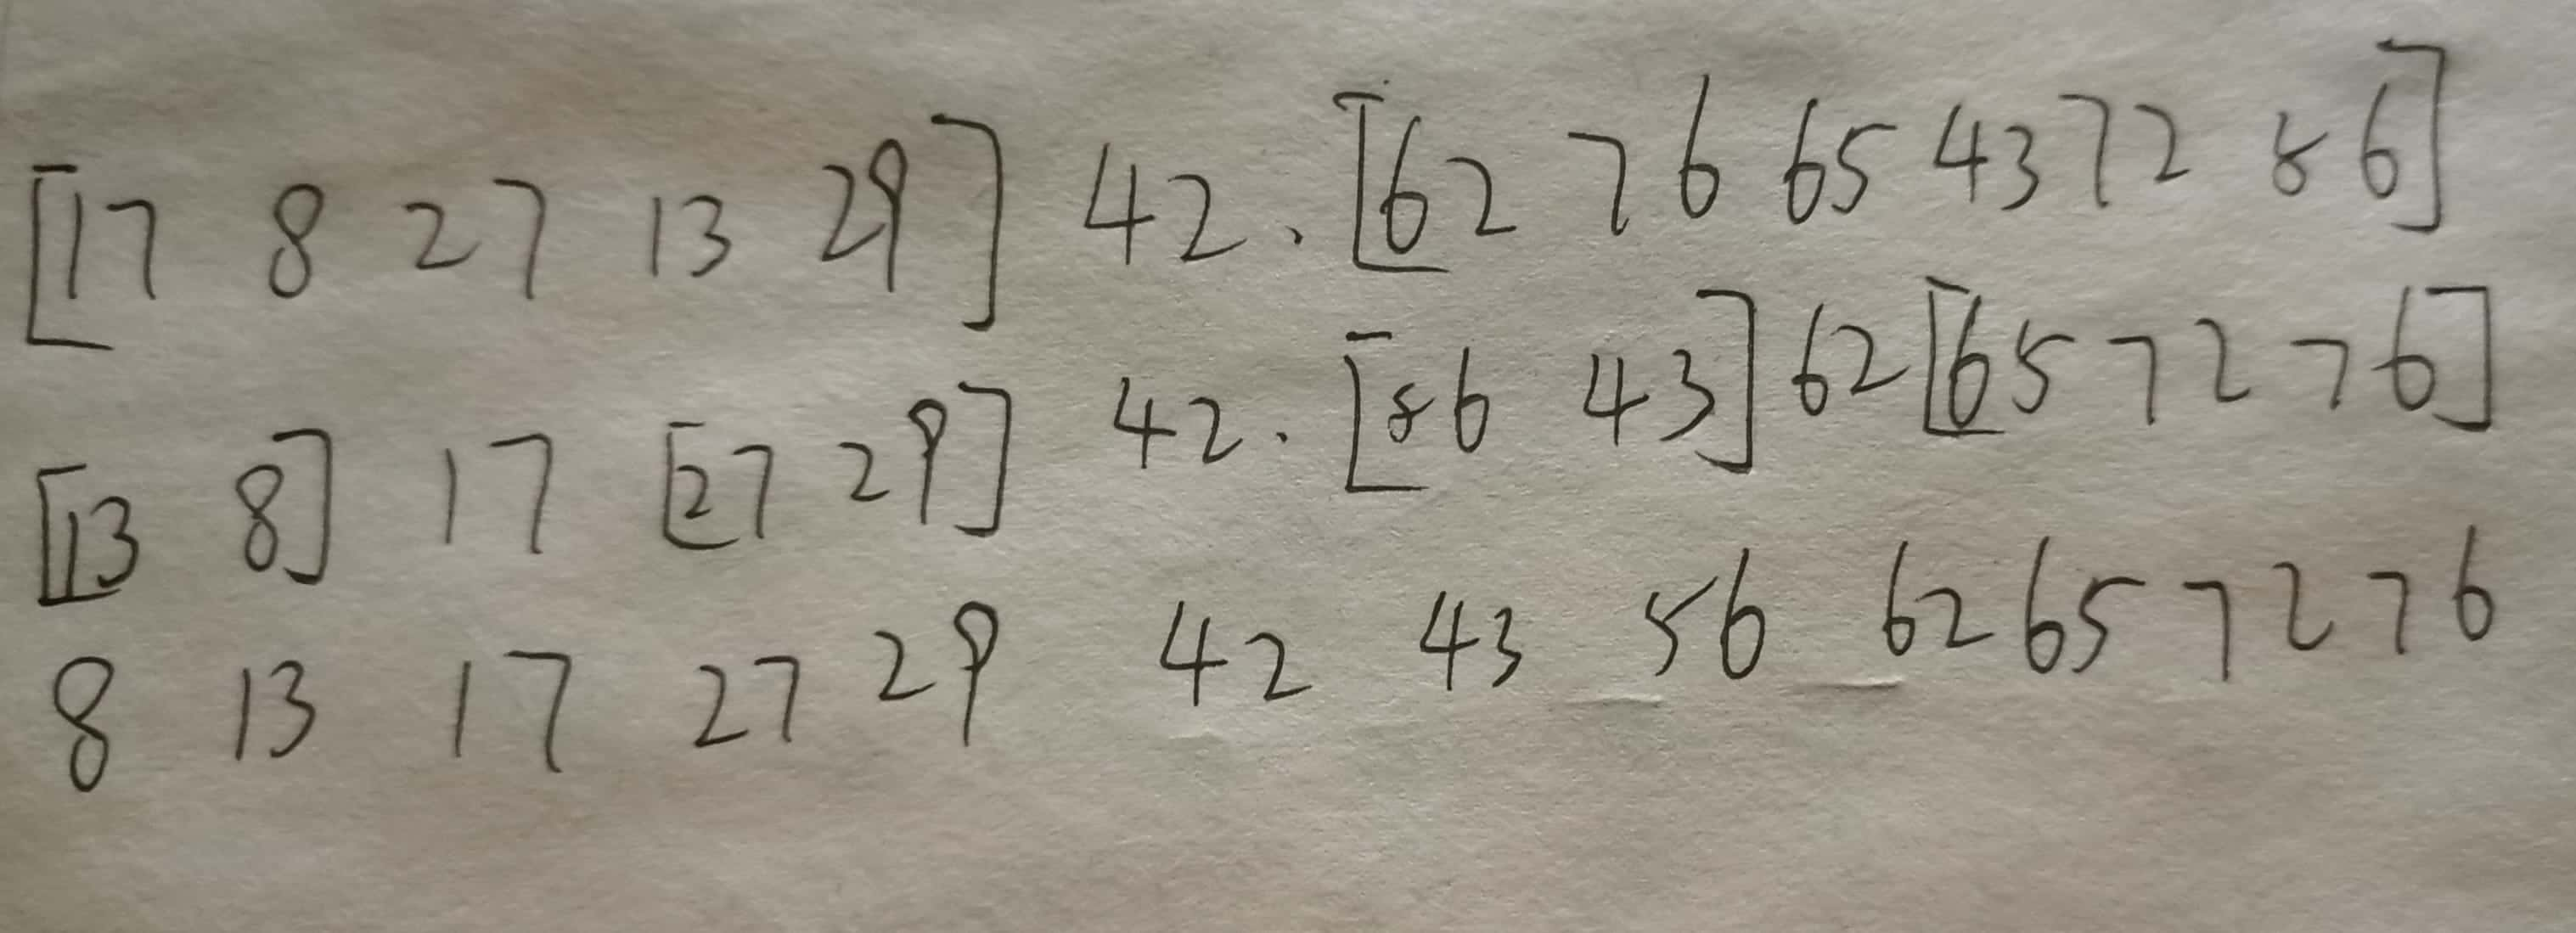 [17 8 27 13 29] 42. [62 76 65 43 72 56]
[13 8] 17 [27 29] 42. [56 43] 62 [65 72 76]
8 13 17 27 29 42 43 56 62 65 72 76